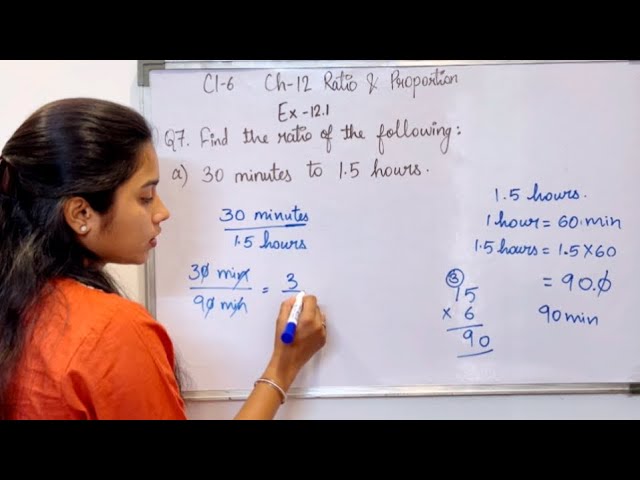 Cl-6 Ch-12 Ratio & Proportion
Ex-12.1
Q7. Find the ratio of the following:
a) 30 minutes to 1.5 hours.
30 minutes
1.5 hours
30 min
90 min
= 3
1.5 hours.
1 hour = 60 min
1.5 hours = 1.5 × 60
= 90.0
90 min
3
15
× 6
90